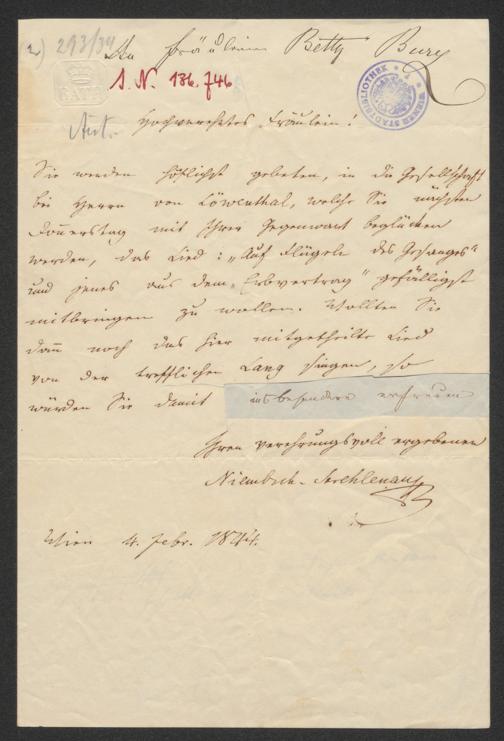 2) 293/34
An Fräulein Betty Bury
I. N. 136.746
BATH
WIENER STADTBIBLIOTHEK
Aut.
Hochverehrtes Fräulein!
Sie werden höflichst gebeten, in die Gesellschaft
bei Herrn von Löwenthal, welche Sie nächsten
Donnerstag mit Ihrer Gegenwart beglücken
werden, das Lied: „Auf Flügeln des Gesanges"
und jenes aus dem „Erbvertrag" gefälligst
mitbringen zu wollen. Wollten Sie
dann noch das hier mitgetheilte Lied
von der trefflichen Lang singen, so
würden Sie damit insbesondere erfreuen
Ihren verehrungsvoll ergebenen
Niembsch-Strehlenau
Wien 4. Febr. 1844.